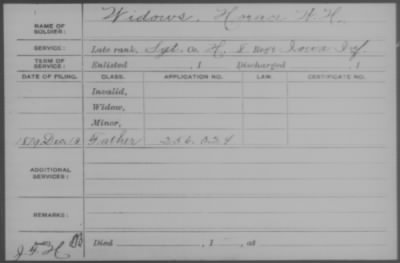 NAME OF SOLDIER: Widows, Horace H. H.
SERVICE: Late rank, Sgt. Co. H, 8 Regt. Iowa Inf.
TERM OF SERVICE: Enlisted , 1 Discharged , 1
DATE OF FILING. CLASS. APPLICATION NO. LAW. CERTIFICATE NO.
Invalid,
Widow,
Minor,
1879 Dec 18 Father 256.024
ADDITIONAL SERVICES:
REMARKS:
Died , 1 , at